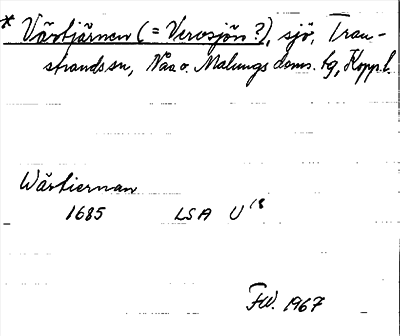 * Vårtjärnen (= Verosjön?), sjö, Tran-
strands sn, Nås o. Malungs doms. hg, Kopp. l.
Wårtiernan
1685 LSA U18
FW. 1967